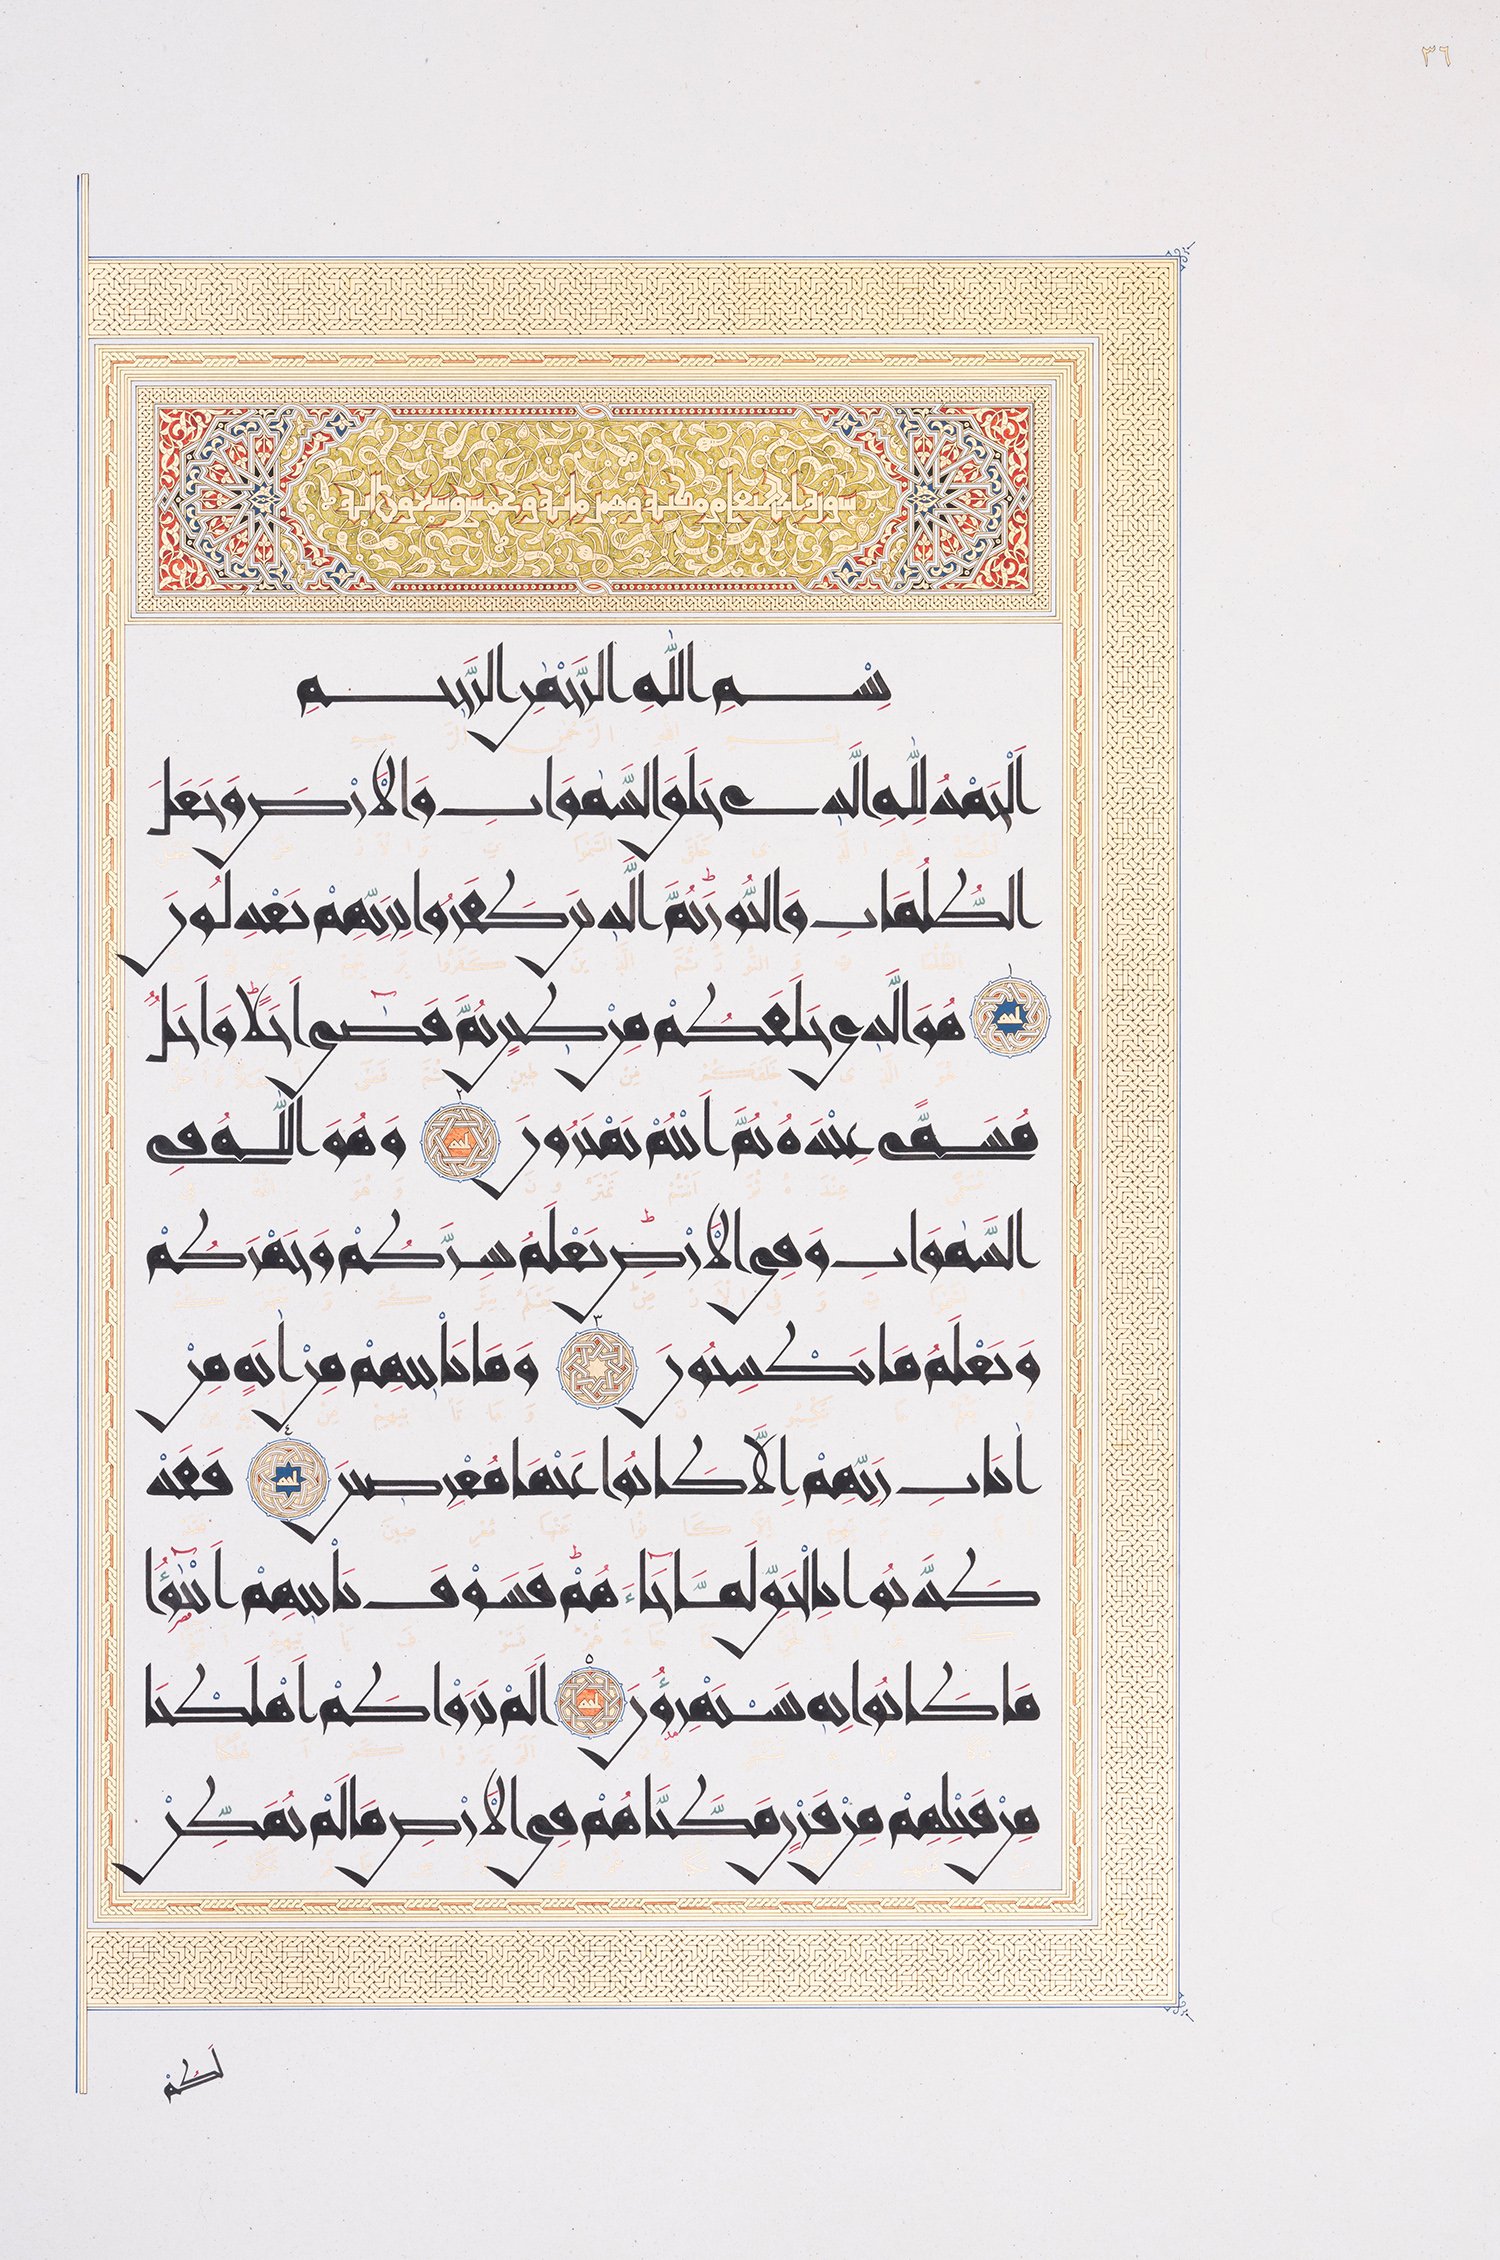 ٣٦
سورة الانعام مكية وهى ماية وخمس وستون اية
بِسْمِ اللّٰهِ الرَّحْمٰنِ الرَّحِيمِ
اَلْحَمْدُ لِلّٰهِ الَّذِى خَلَقَ السَّمٰوَاتِ وَالْاَرْضَ وَجَعَلَ
الظُّلُمَاتِ وَالنُّورَ ثُمَّ الَّذِينَ كَفَرُوا بِرَبِّهِمْ يَعْدِلُونَ
١ هُوَ الَّذِى خَلَقَكُمْ مِنْ طِينٍ ثُمَّ قَضٰٓى اَجَلًا وَاَجَلٌ
مُسَمًّى عِنْدَهُ ثُمَّ اَنْتُمْ تَمْتَرُونَ ٢ وَهُوَ اللّٰهُ فِى
السَّمٰوَاتِ وَفِى الْاَرْضِ يَعْلَمُ سِرَّكُمْ وَجَهْرَكُمْ
وَيَعْلَمُ مَا تَكْسِبُونَ ٣ وَمَا تَاْتِيهِمْ مِنْ اٰيَةٍ مِنْ
اٰيَاتِ رَبِّهِمْ اِلَّا كَانُوا عَنْهَا مُعْرِضِينَ ٤ فَقَدْ
كَذَّبُوا بِالْحَقِّ لَمَّا جَٓاءَهُمْ فَسَوْفَ يَاْتِيهِمْ اَنْبٰٓؤُا
مَا كَانُوا بِهِ يَسْتَهْزِؤُنَ ٥ اَلَمْ يَرَوْا كَمْ اَهْلَكْنَا
مِنْ قَبْلِهِمْ مِنْ قَرْنٍ مَكَّنَّاهُمْ فِى الْاَرْضِ مَا لَمْ نُمَكِّنْ
لَكُمْ